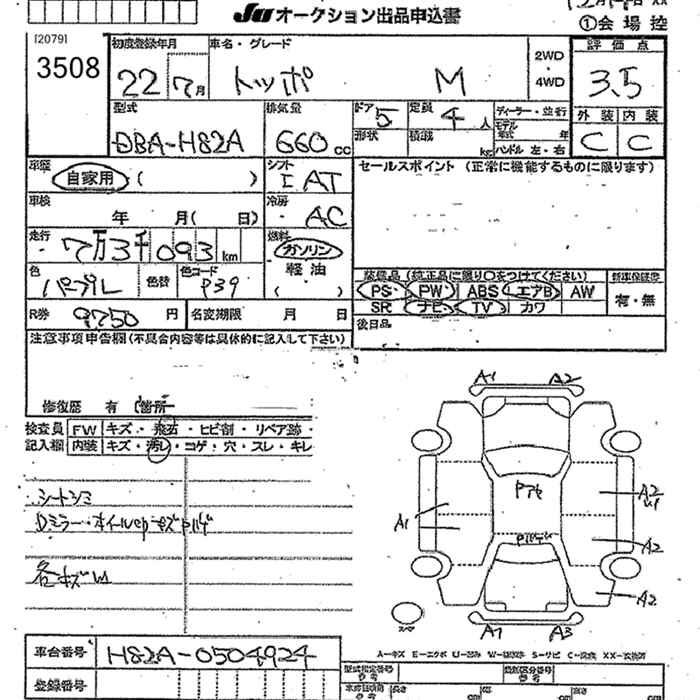 JU オークション出品申込書
①会場控
120791
3508
初度登録年月
22 7月
車名・グレード
トッポ M
2WD
4WD
評価点
3.5
外装 内装
C C
型式
DBA-H82A
排気量
660 cc
ドア 5
形状
定員 4 人
積載 kg
ディーラー・並行
モデル年式 年
ハンドル 左・右
車歴
自家用 ( )
シフト
I AT
セールスポイント (正常に機能するものに限ります)
車検
年 月( 日)
冷房
AC
走行
7万3千093 km
燃料
ガソリン
軽油
( )
色
パープル
色替
色コード
P39
装備品 (純正品に限り○をつけてください)
PS PW ABS エアB AW
SR ナビ TV カワ
新車保証書
有・無
R券 9750 円
名変期限 月 日
後日品
注意事項申告欄(不具合内容等は具体的に記入して下さい)
修復歴 有 (箇所
検査員記入欄
FW キズ・飛石・ヒビ割・リペア跡・
内装 キズ・汚レ・コゲ・穴・スレ・キレ
シートシミ
Dミラー・ホイルcapキズPハゲ
各キズW
A1 A2
Pアセ
Pハゲ
A1
A2
A2
A2
A1 A3
スペア
A-キズ E-エクボ U-凹み W-補修跡 S-サビ C-腐食 XX-交換済
車台番号 H82A-0504924
登録番号
型式指定番号
類別区分番号
長さ cm
cm
cm